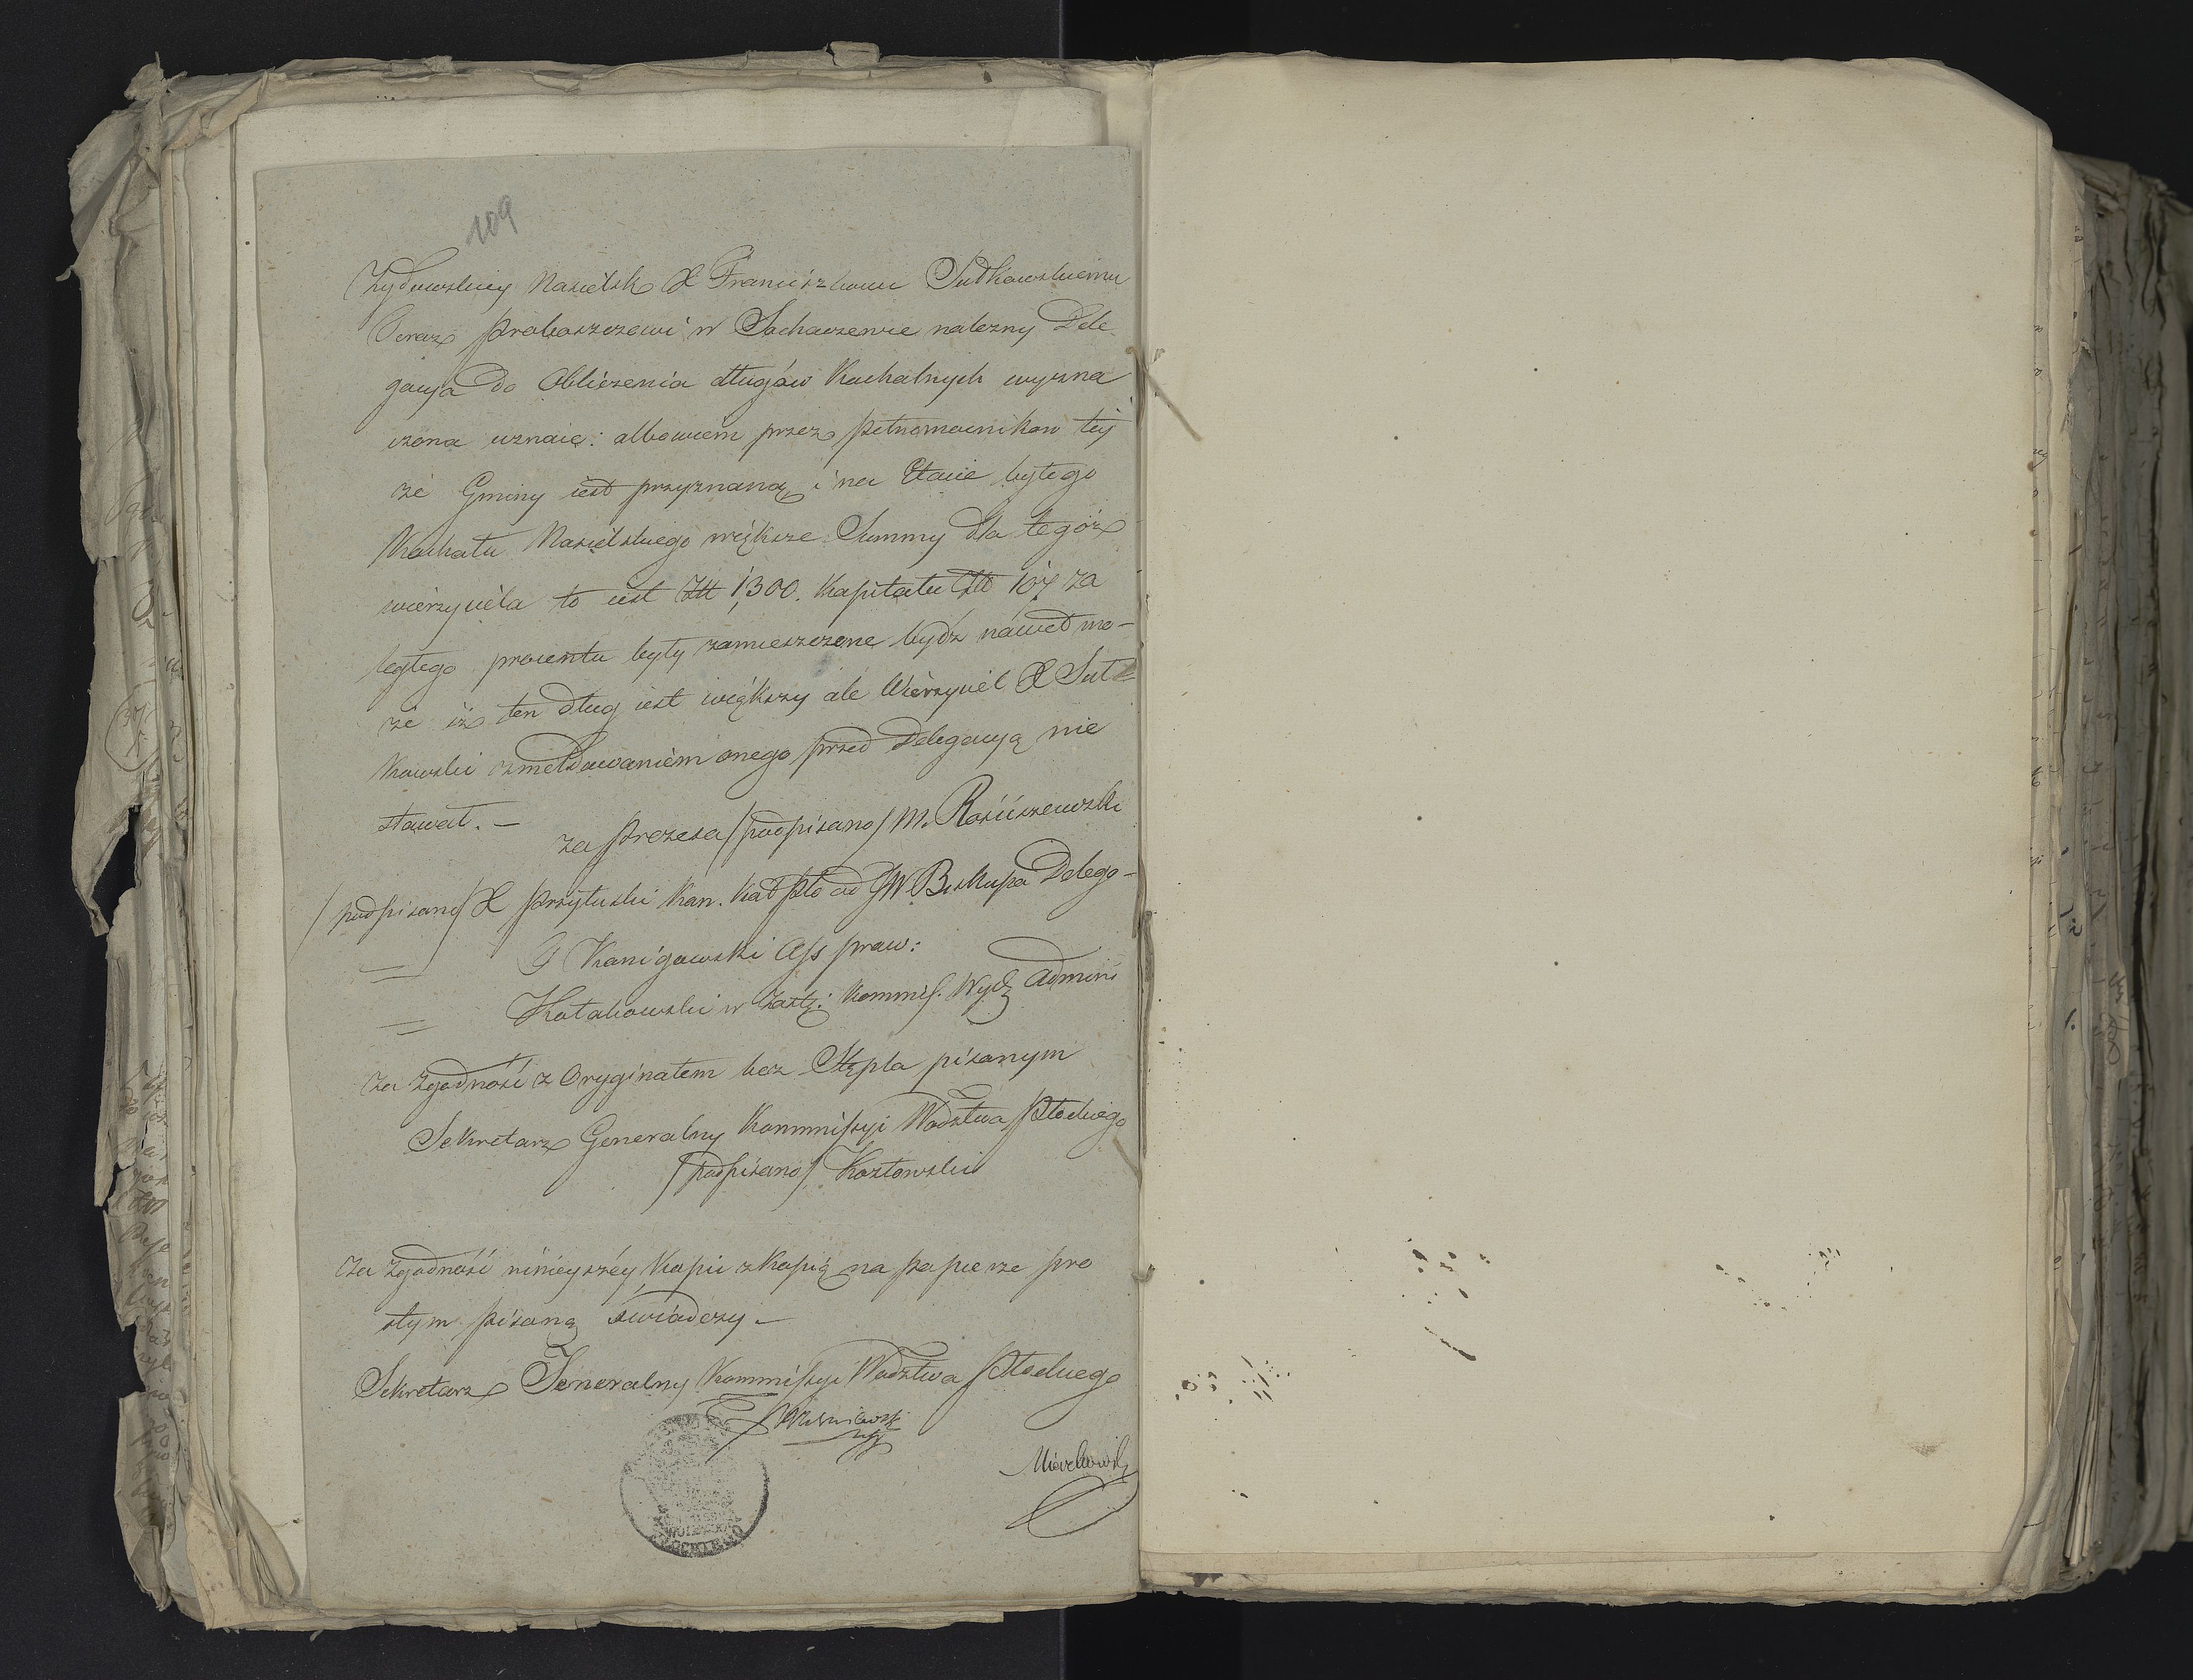 109
Zydowskiey Nasielsk X Franciszkowi Sutkowskiemu
teraz Proboszczowi w Sochaczewie nalezny Dele-
gacya do Obliczenia długów Kachalnych wyzna
czona uznaie: albowiem przez Pełnomocnikow tey
że Gminy iest przyznaną i na Etacie byłego
Kachału Nasielskiego większe Summy dla tegoż
wierzyciela to iest Złł 1300. Kapitału Złł 107 za
ległego procentu były zamieszczone bydź nawet mo-
że iż ten dług iest większy ale Wierzyciel X Sut-
kowski z meldowaniem onego przed Delegacyą nie
stawał. –
za Prezesa /podpisano/ M. Rościszewski
/podpisano/ X Przyłuski Kan. Kat Pło od JW. Biskupa Delego-
= G Kanigowski Ass praw:
= Kołakowski w Zastę: Kommiss. Wydz Admini
Za zgodność z Oryginałem bez Stępla pisanym
Sekretarz Generalny Kommissyi Wodztwa Płockiego
/podpisano/ Kozłowski
Za zgodność ninieyszéy Kopii z Kopią na papierze pro
stym pisaną świadczy –
Sekretarz Jeneralny Kommissyi Wodztwa Płockiego